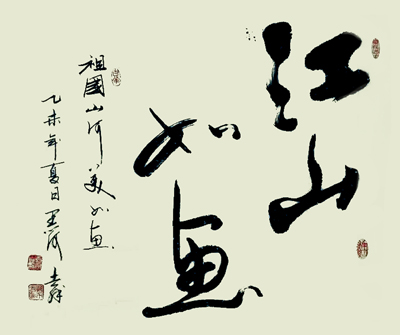 江山
如画
祖國山河美如画
乙未年夏日